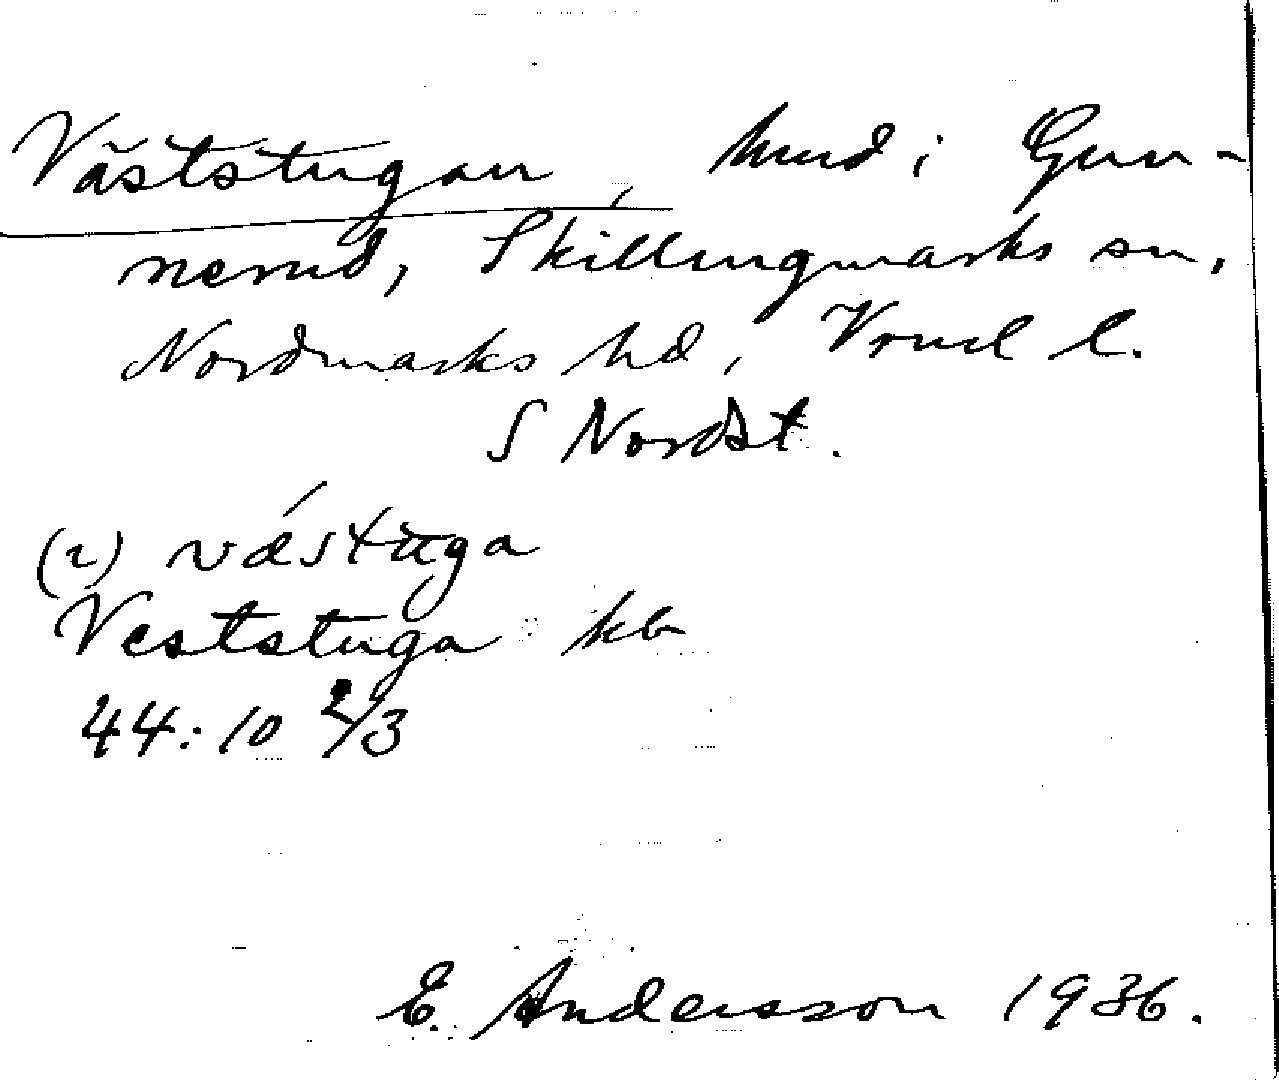 Väststugan, hmd i Gun-
nerud, Skillingmarks sn,
Nordmarks hd, Vrml l.
S Nordst.
(i) vǽstuga
Veststuga kb
44:10 2/3
E. Andersson 1936.